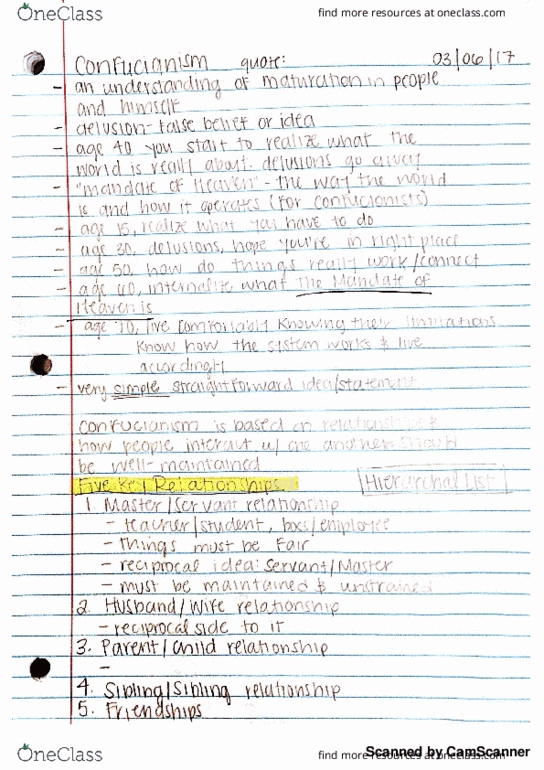 OneClass
find more resources at oneclass.com
Confucianism quote: 03/06/17
- an understanding of maturation in people
and himself
- delusion - false belief or idea
- age 40 you start to realize what the
world is really about. delusions go away
- "mandate of Heaven" - the way the world
is and how it operates (for confucionists)
- age 15, realize what you have to do
- age 30, delusions, hope you're in right place
- age 50, how do things really work/connect
- age 60, internalize what the Mandate of
Heaven is
- age 70, live comfortably knowing their limitations
know how the system works & live
accordingly
- very simple straightforward idea/statement
Confucianism is based on relationships &
how people interact w/ one another should
be well-maintained
Five Key Relationships. Hierarchal List
1. Master/Servant relationship
- teacher/student, boss/employee
- things must be Fair
- reciprocal idea: Servant/Master
- must be maintained &
2. Husband/Wife relationship
- reciprocal side to it
3. Parent/Child relationship
-
4. Sibling/Sibling relationship
5. Friendships
Scanned by CamScanner
OneClass
find more resources at oneclass.com